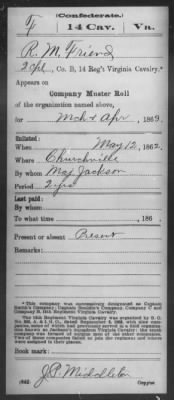 (Confederate.)
F 14 Cav. Va.
R. M. Friend
2 Cpl., Co. B, 14 Reg't Virginia Cavalry.*
Appears on
Company Muster Roll
of the organization named above,
for Mch & Apr, 1863.
Enlisted:
When May 12, 1862.
Where Churchville
By whom Maj Jackson
Period 2 yrs
Last paid:
By whom
To what time , 186 .
Present or absent Present
Remarks:
*This company was successively designated as Captain
Smith's Company, Company C and
Company B, 14th Regiment Virginia Cavalry.
The 14th Regiment Virginia Cavalry was organized by S. O.
panies, some of which had previously served in a field organization
known as Jackson's Squadron Virginia Cavalry;
Two of these companies failed to join the regiment and others
were assigned to their places.
Book mark:
J. P. Middleton
(642) Copyist.